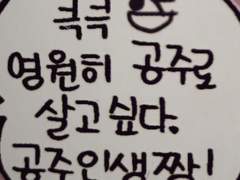 큭큭
영원히 공주로
살고싶다.
공주인생짱!